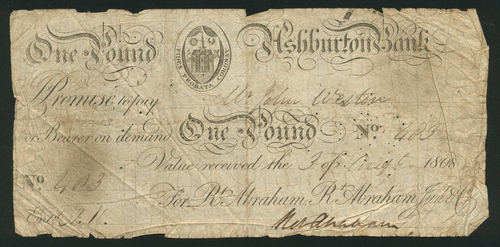 One Pound
FIDES PROBATA CORONAT
Ashburton Bank
Promise to pay Mr. John Weston
or Bearer on demand One Pound No. 403
Value received the 3 of Augt. 1808
No. 403
For Rt. Abraham, Rt. Abraham Junr. & Co.
Entd.
Rt Abraham